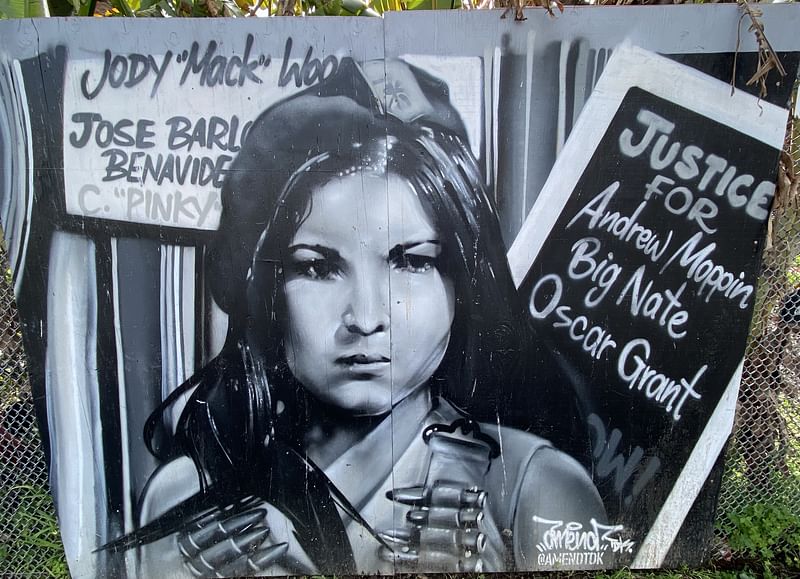 JODY "Mack" Woo
JOSE BARL
BENAVIDE
C. "PINKY"
JUSTICE
FOR
Andrew Moppin
Big Nate
Oscar Grant
amend
TDK
@AMENDTDK